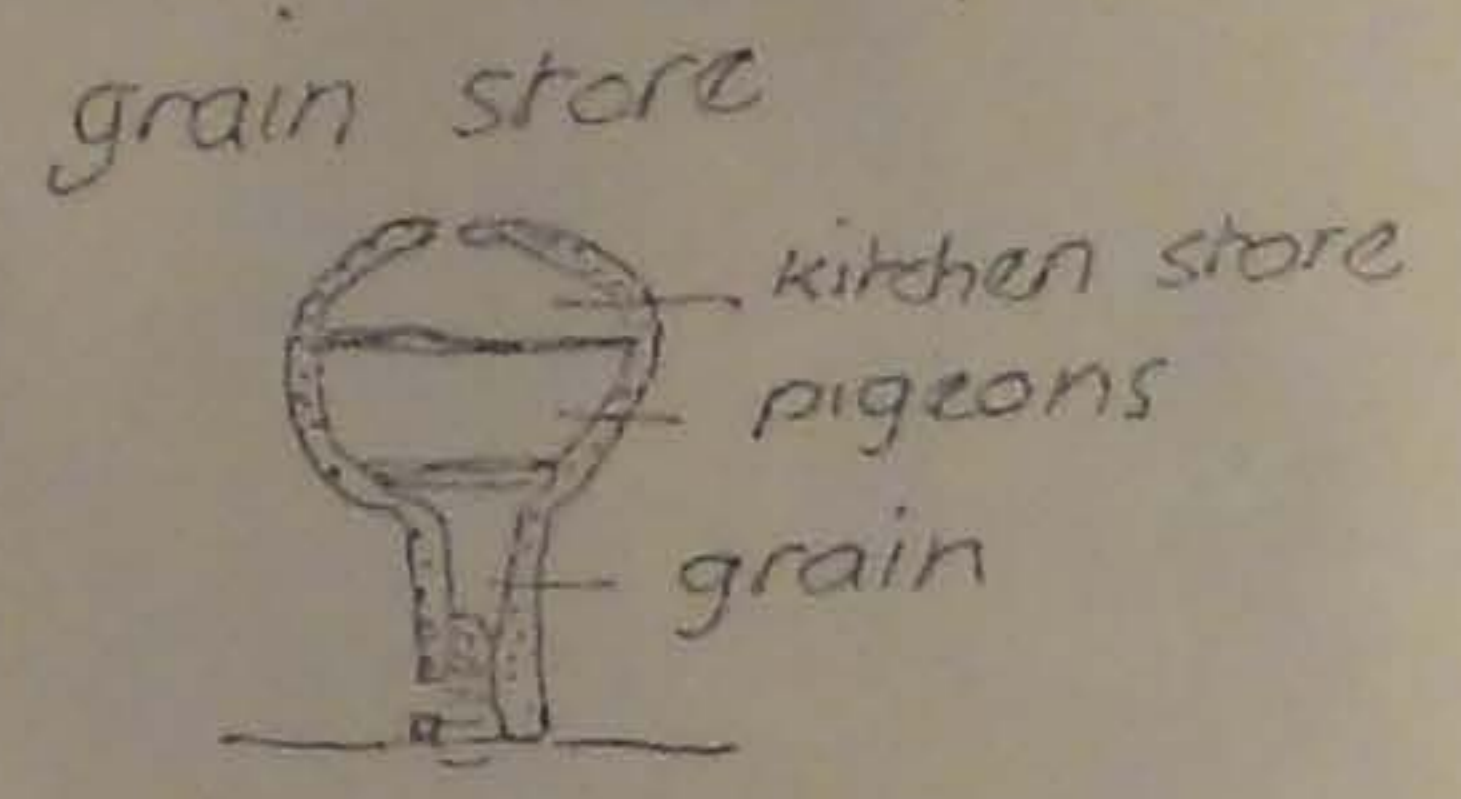 grain store
kitchen store
pigeons
grain